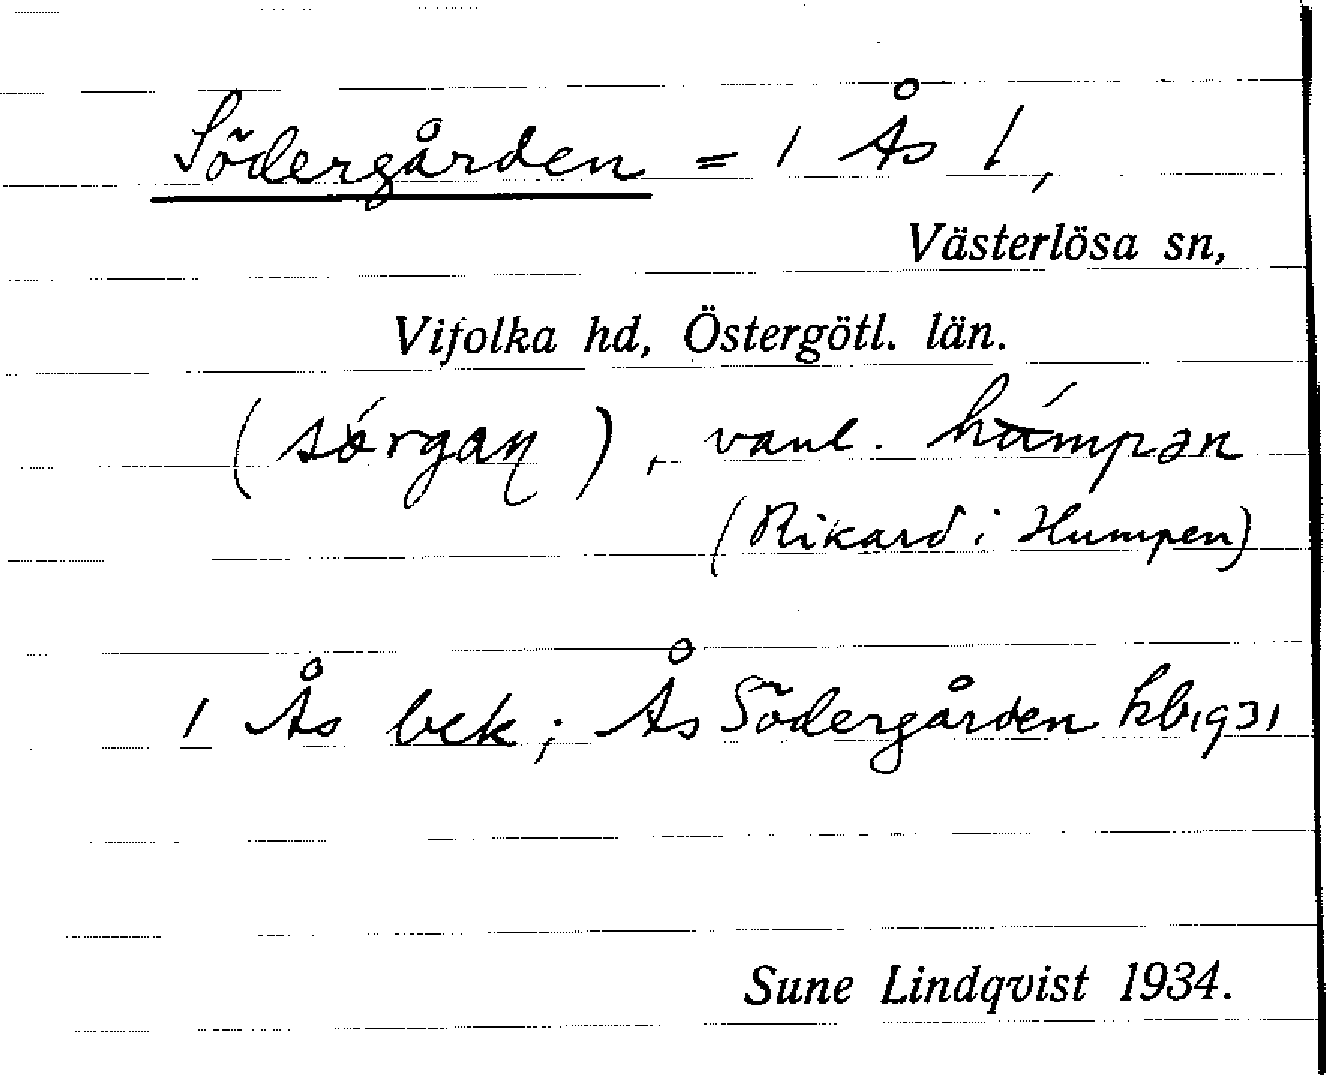 Södergården = 1 Ås 1,
Västerlösa sn,
Vifolka hd, Östergötl. län.
(          ), vanl.
(Rikard i Humpen)
1 Ås bek; Ås Södergården kb 1931
Sune Lindqvist 1934.